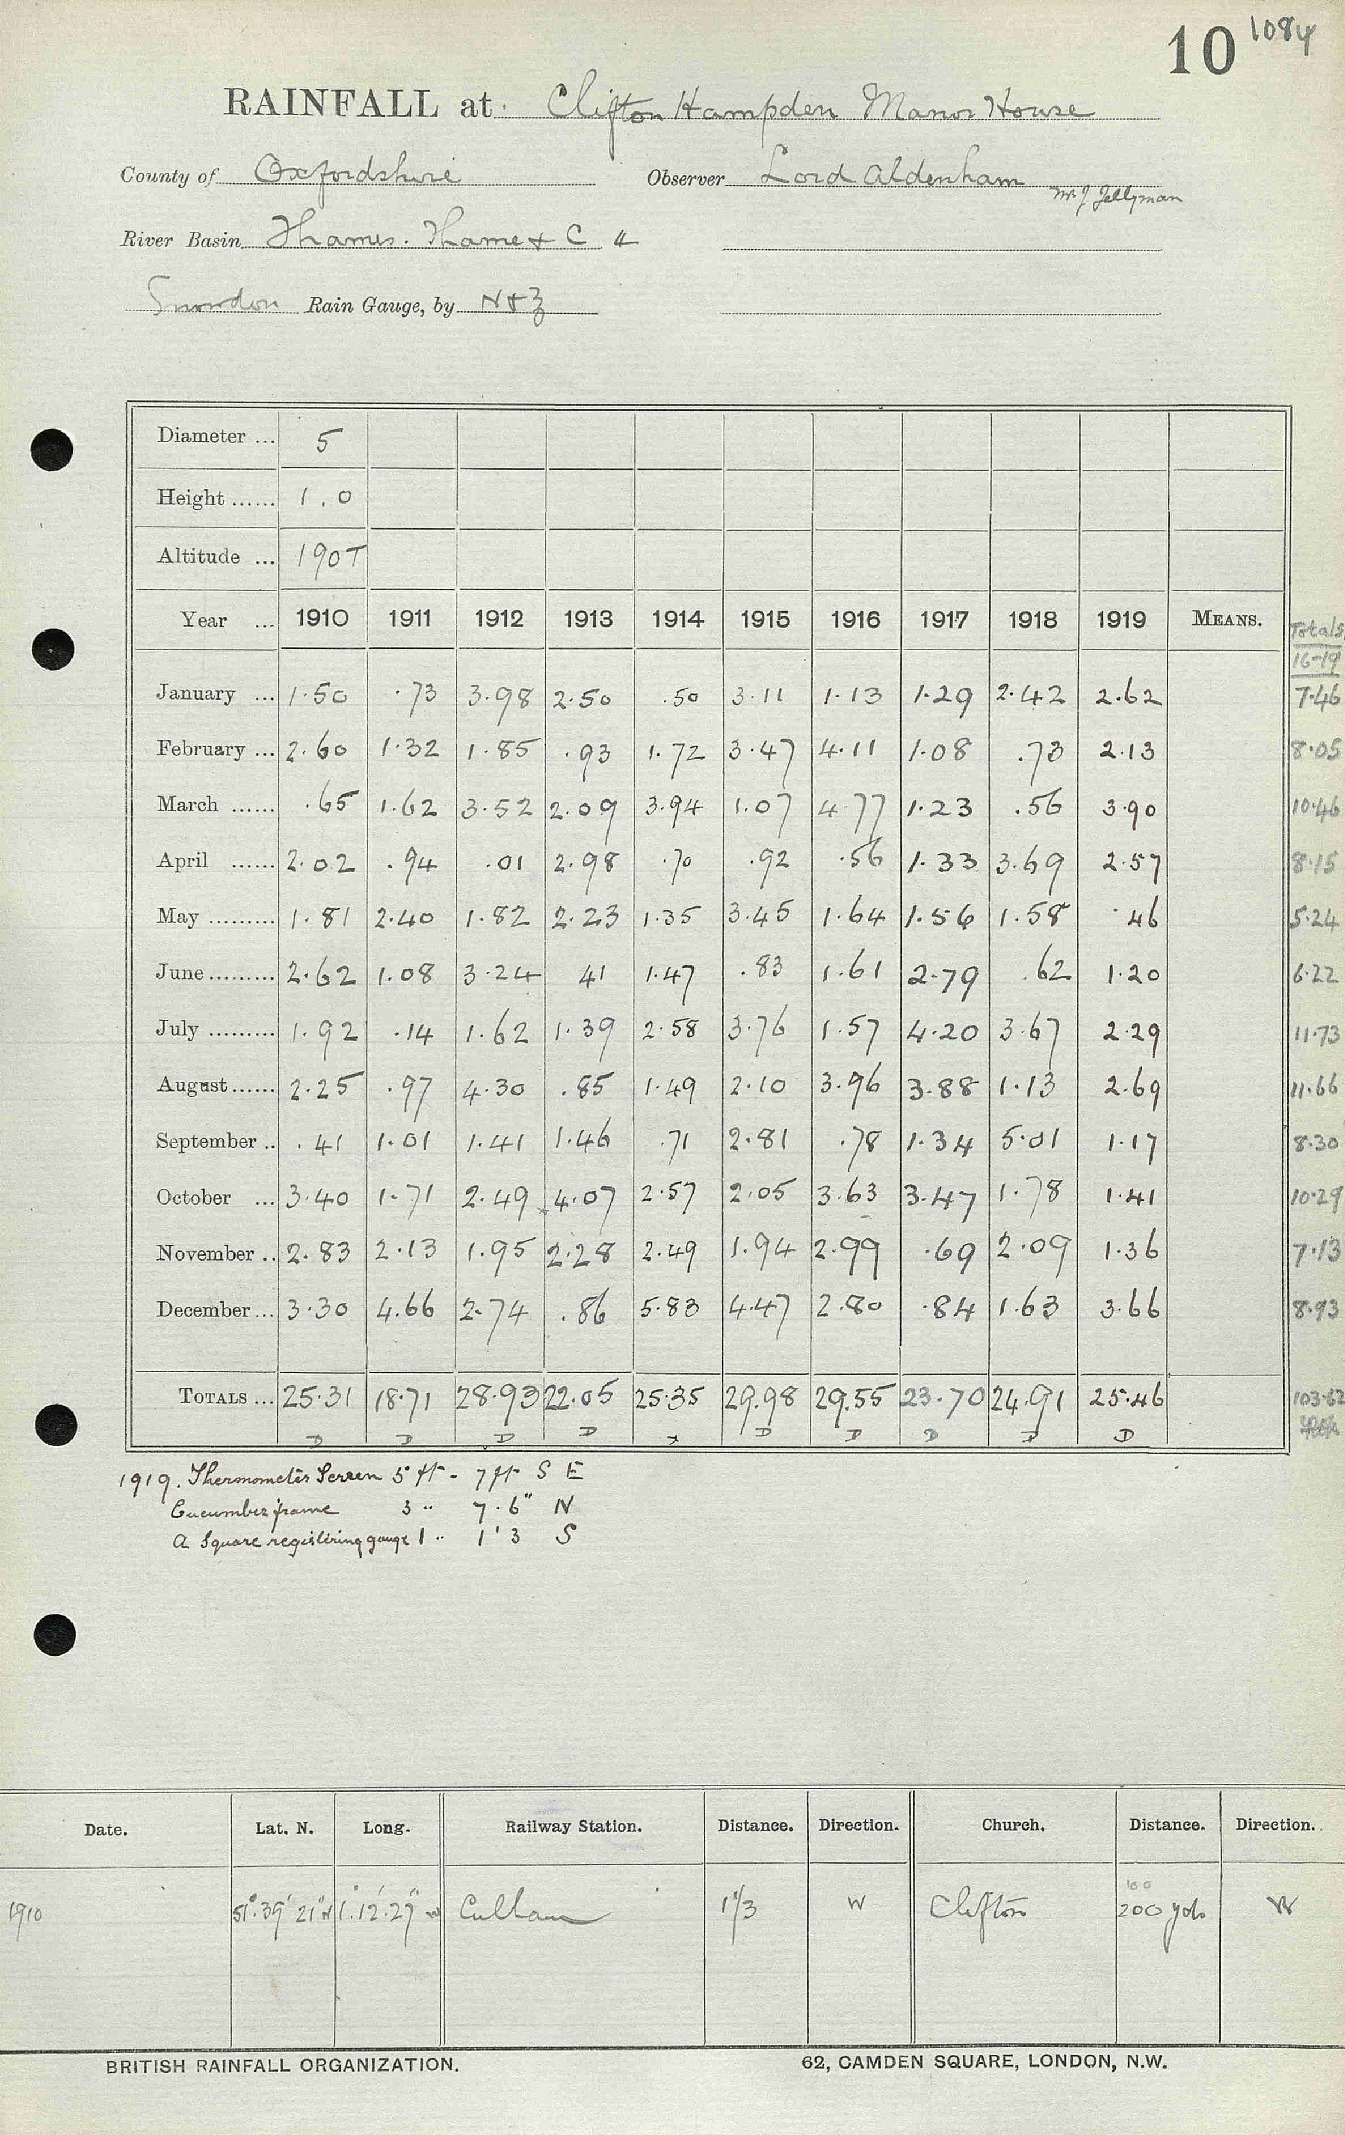 10 1084
RAINFALL at Clifton Hampden Manor House
County of Oxfordshire Observer Lord Aldenham
Mr J Jellyman
River Basin Thames. Thame & C 4
Snowdon Rain Gauge, by N & Z
Diameter ... 5
Height ...... 1.0
Altitude ... 190T
Year ... 1910 1911 1912 1913 1914 1915 1916 1917 1918 1919 MEANS. Totals 16-19
January ... 1.50 .73 3.98 2.50 .50 3.11 1.13 1.29 2.42 2.62 7.46
February ... 2.60 1.32 1.85 .93 1.72 3.47 4.11 1.08 .73 2.13 8.05
March ...... .65 1.62 3.52 2.09 3.94 1.07 4.77 1.23 .56 3.90 10.46
April ...... 2.02 .94 .01 2.98 .70 .92 .56 1.33 3.69 2.57 8.15
May ......... 1.81 2.40 1.82 2.23 1.35 3.45 1.64 1.56 1.58 .46 5.24
June ......... 2.62 1.08 3.24 41 1.47 .83 1.61 2.79 .62 1.20 6.22
July ......... 1.92 .14 1.62 1.39 2.58 3.76 1.57 4.20 3.67 2.29 11.73
August ...... 2.25 .97 4.30 .85 1.49 2.10 3.96 3.88 1.13 2.69 11.66
September .. .41 1.01 1.41 1.46 .71 2.81 .78 1.34 5.01 1.17 8.30
October ... 3.40 1.71 2.49 4.07 2.57 2.05 3.63 3.47 1.78 1.41 10.29
November .. 2.83 2.13 1.95 2.28 2.49 1.94 2.99 .69 2.09 1.36 7.13
December ... 3.30 4.66 2.74 .86 5.83 4.47 2.80 .84 1.63 3.66 8.93
TOTALS ... 25.31 18.71 28.93 22.05 25.35 29.98 29.55 23.70 24.91 25.46 103.62
D D D D D D D D D
1919. Thermometer Screen 5 ft - 7 ft S E
Cucumber frame 3 " 7.6" N
A Square registering gauge 1 " 1'3 S
Date. Lat. N. Long. Railway Station. Distance. Direction. Church. Distance. Direction.
100
1910 51°.39' 21"N 1°.12'.27" W Culham 1 1/3 W Clifton 200 yds W
BRITISH RAINFALL ORGANIZATION. 62, CAMDEN SQUARE, LONDON, N.W.